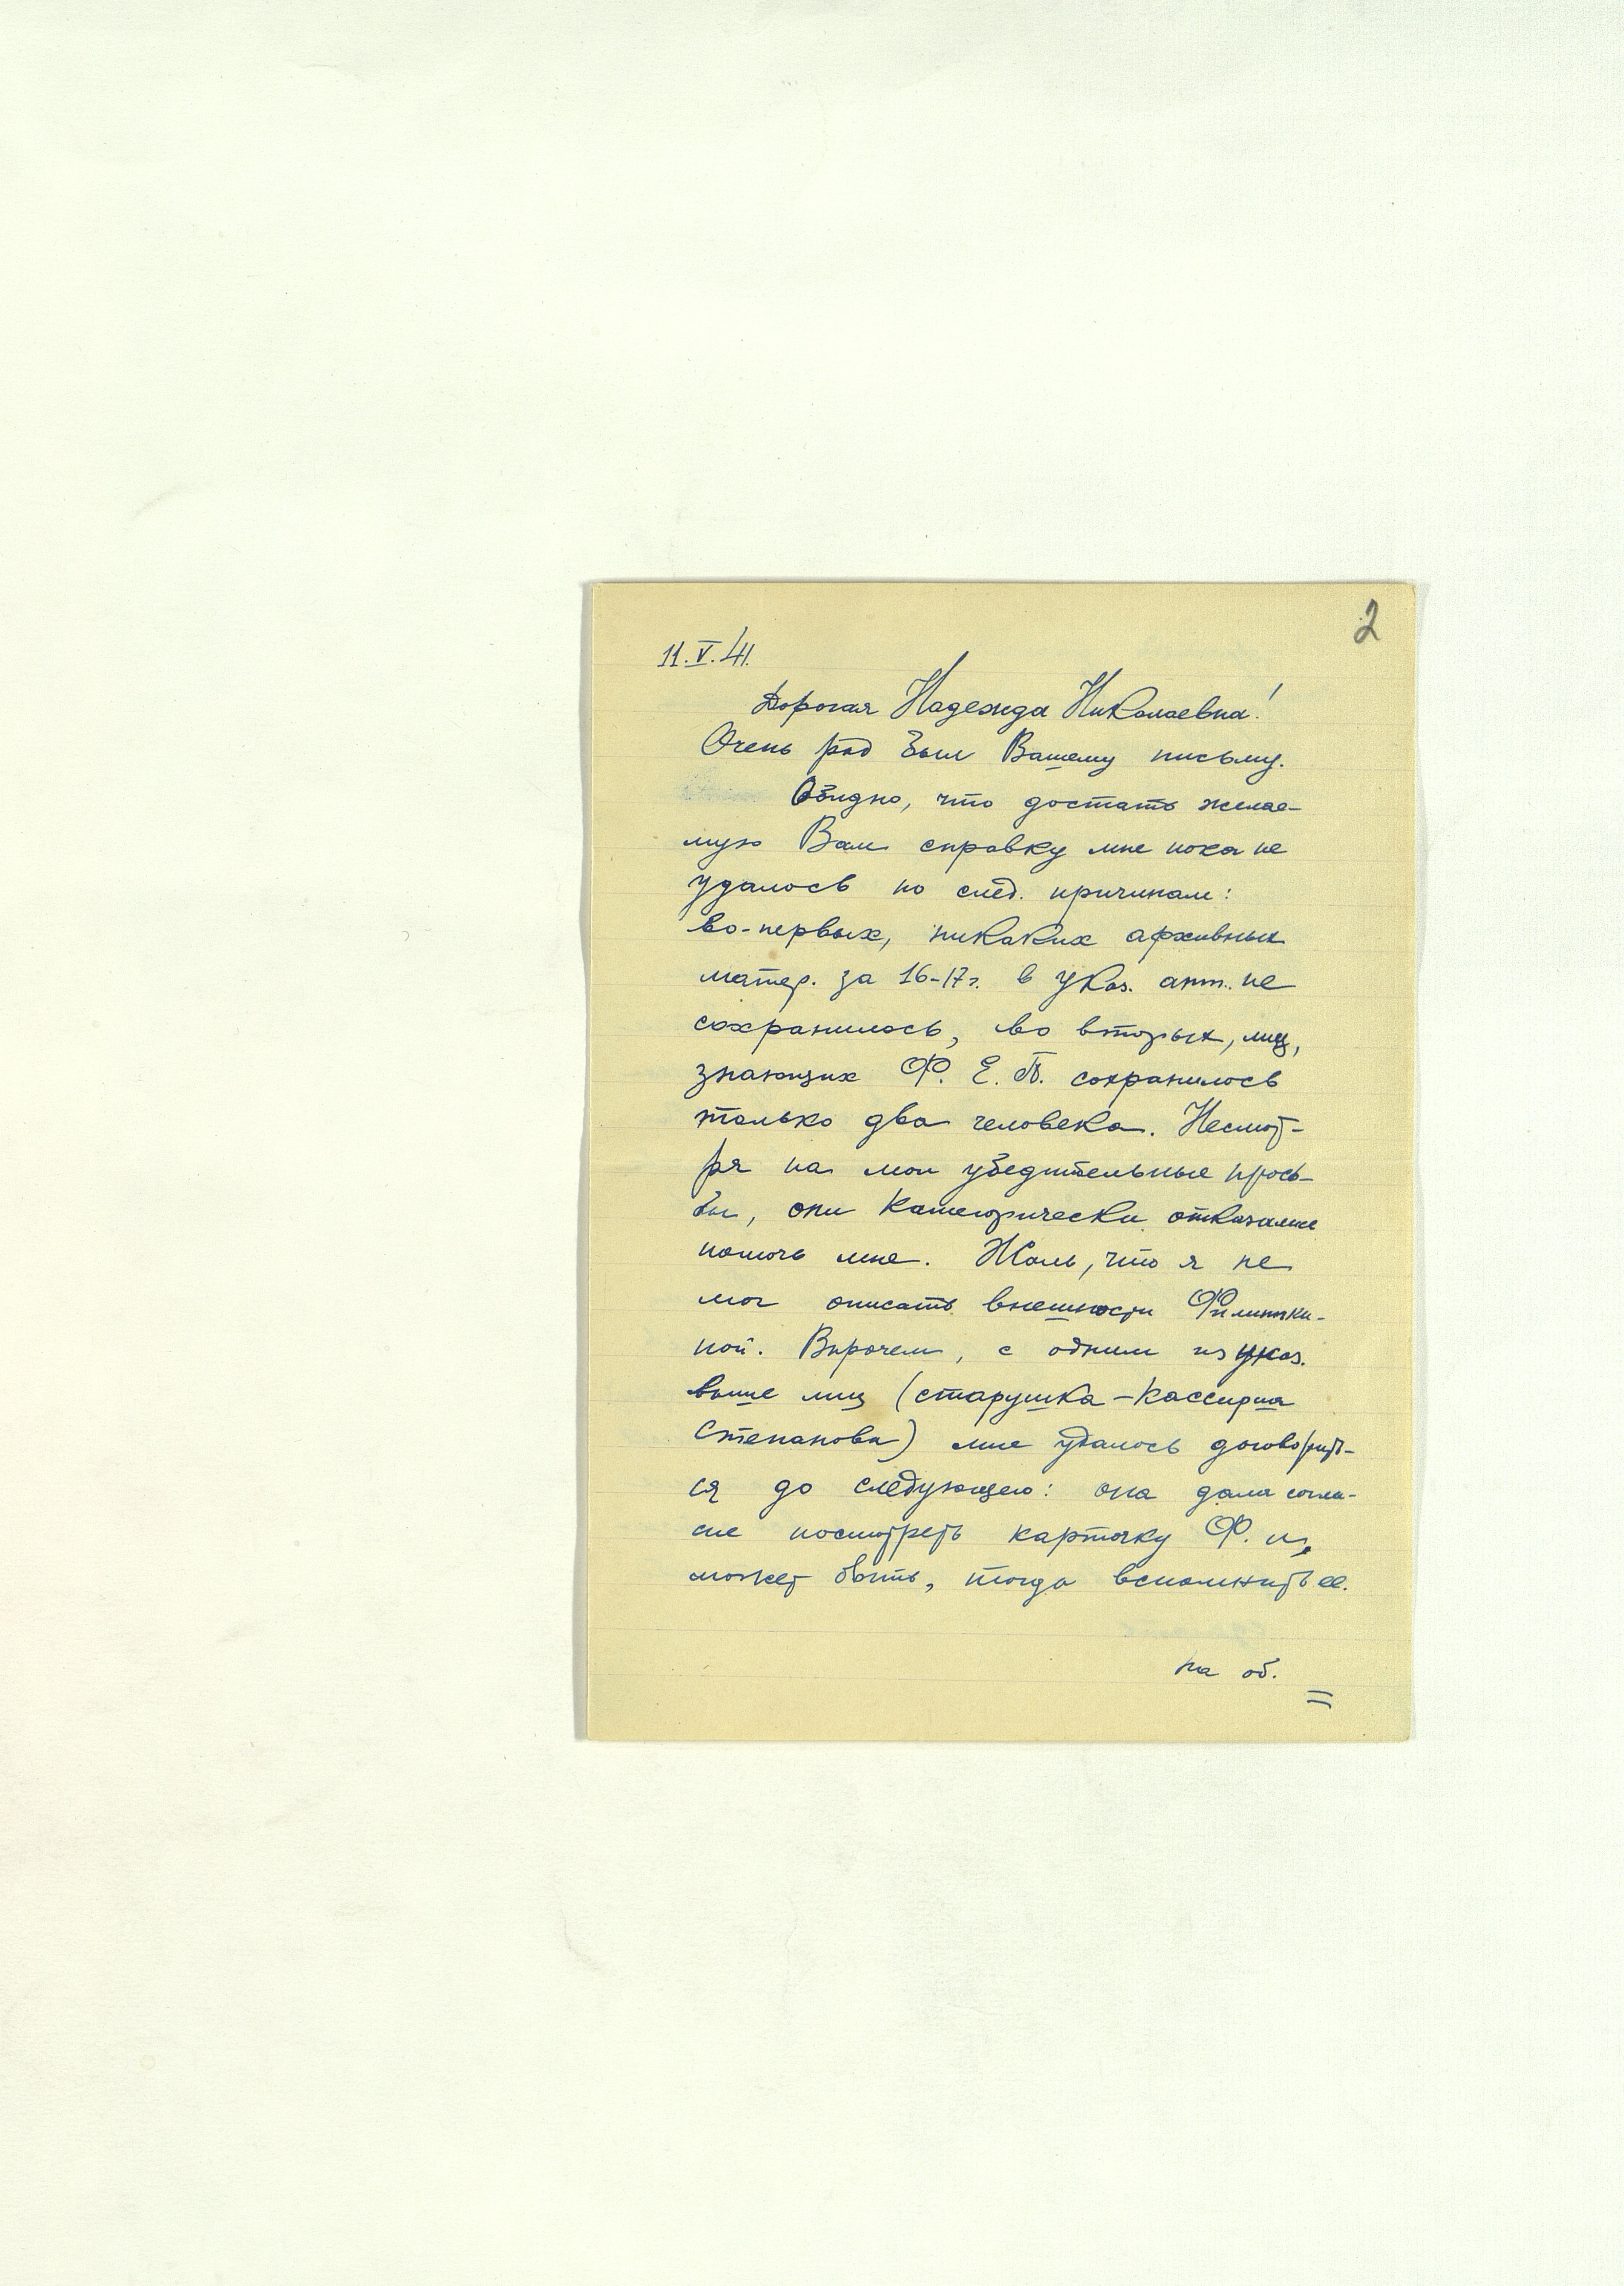 2
11.V.41.
Дорогая Надежда Николаевна!
Очень рад был Вашему письму.
Обидно, что достать желае-
мую Вам справку мне пока не
удалось по след. причинам:
во-первых, никаких архивных
матер. за 16-17 г. в указ. апт. не
сохранилось, во вторых, лиц,
знающих Ф. Е. П. сохранилось
только два человека. Несмот-
ря на мои убедительные прось-
бы, они категорически отказались
помочь мне. Жаль, что я не
мог описать внешности
ной. Впрочем, с одним из указ.
выше лиц (старушка-кассирша
Степанова) мне удалось договорить-
ся до следующего: она дала согла-
сие посмотреть карточку Ф. и,
может быть, тогда вспомнить ее.
на об.